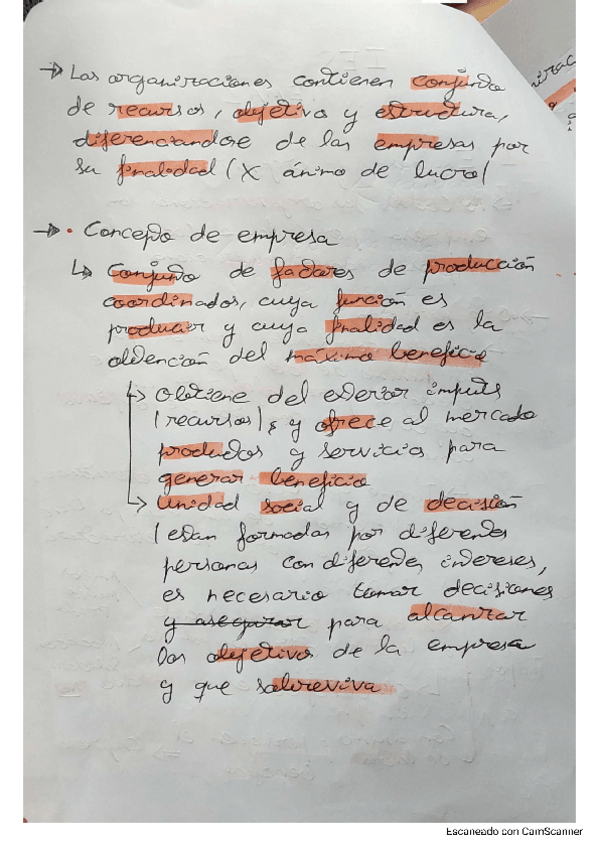 → Las organizaciones contienen conjunto
de recursos, objetivo y estructura,
diferenciandose de las empresas por
su finalidad (X ánimo de lucro)
→ • Concepto de empresa
↳ Conjunto de factores de producción
coordinados, cuya función es
producir y cuya finalidad es la
obtención del máximo beneficio
↳ Obtiene del exterior imputs
(recursos), y ofrece al mercado
productos y servicios para
generar beneficio
↳ Unidad social y de decisión
(estan formadas por diferentes
personas con diferentes intereses,
es necesario tomar decisiones
y asegurar para alcanzar
los objetivos de la empresa
y que sobreviva
Escaneado con CamScanner